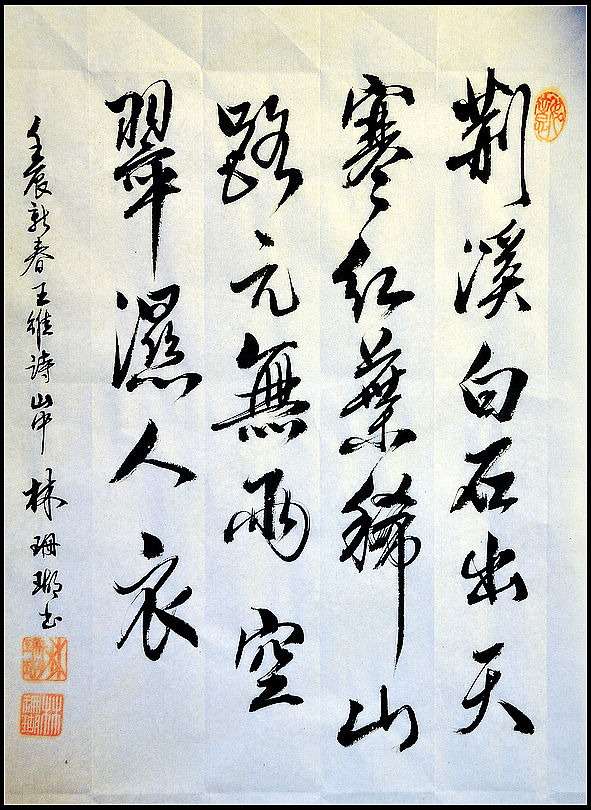 荆溪白石出天
寒紅葉稀山
路元無雨空
翠濕人衣
壬辰新春王維詩山中 林珊瑚书